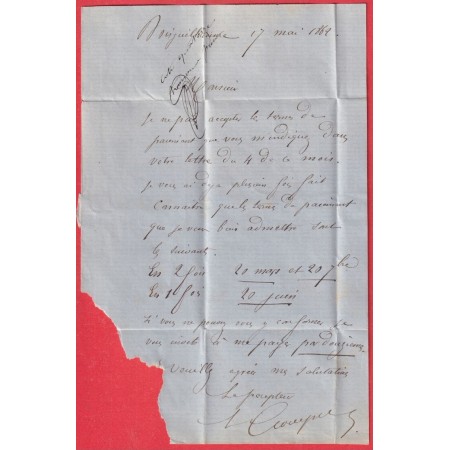 17 mai 1862
Monsieur
Je ne puis accepter le terme de
paiement que vous m'indiquez dans
votre lettre du 4 de ce mois.
Je vous ai déjà plusieurs fois fait
connaitre que les termes de paiement
que je veux bien admettre sont
les suivants.
En 2 fois 20 mars et 20 7bre
En 1 fois 20 juin
Si vous ne pouvez vous y conformer je
vous invite à me payer par douzièmes
Veuillez agréer mes salutations
Le percepteur